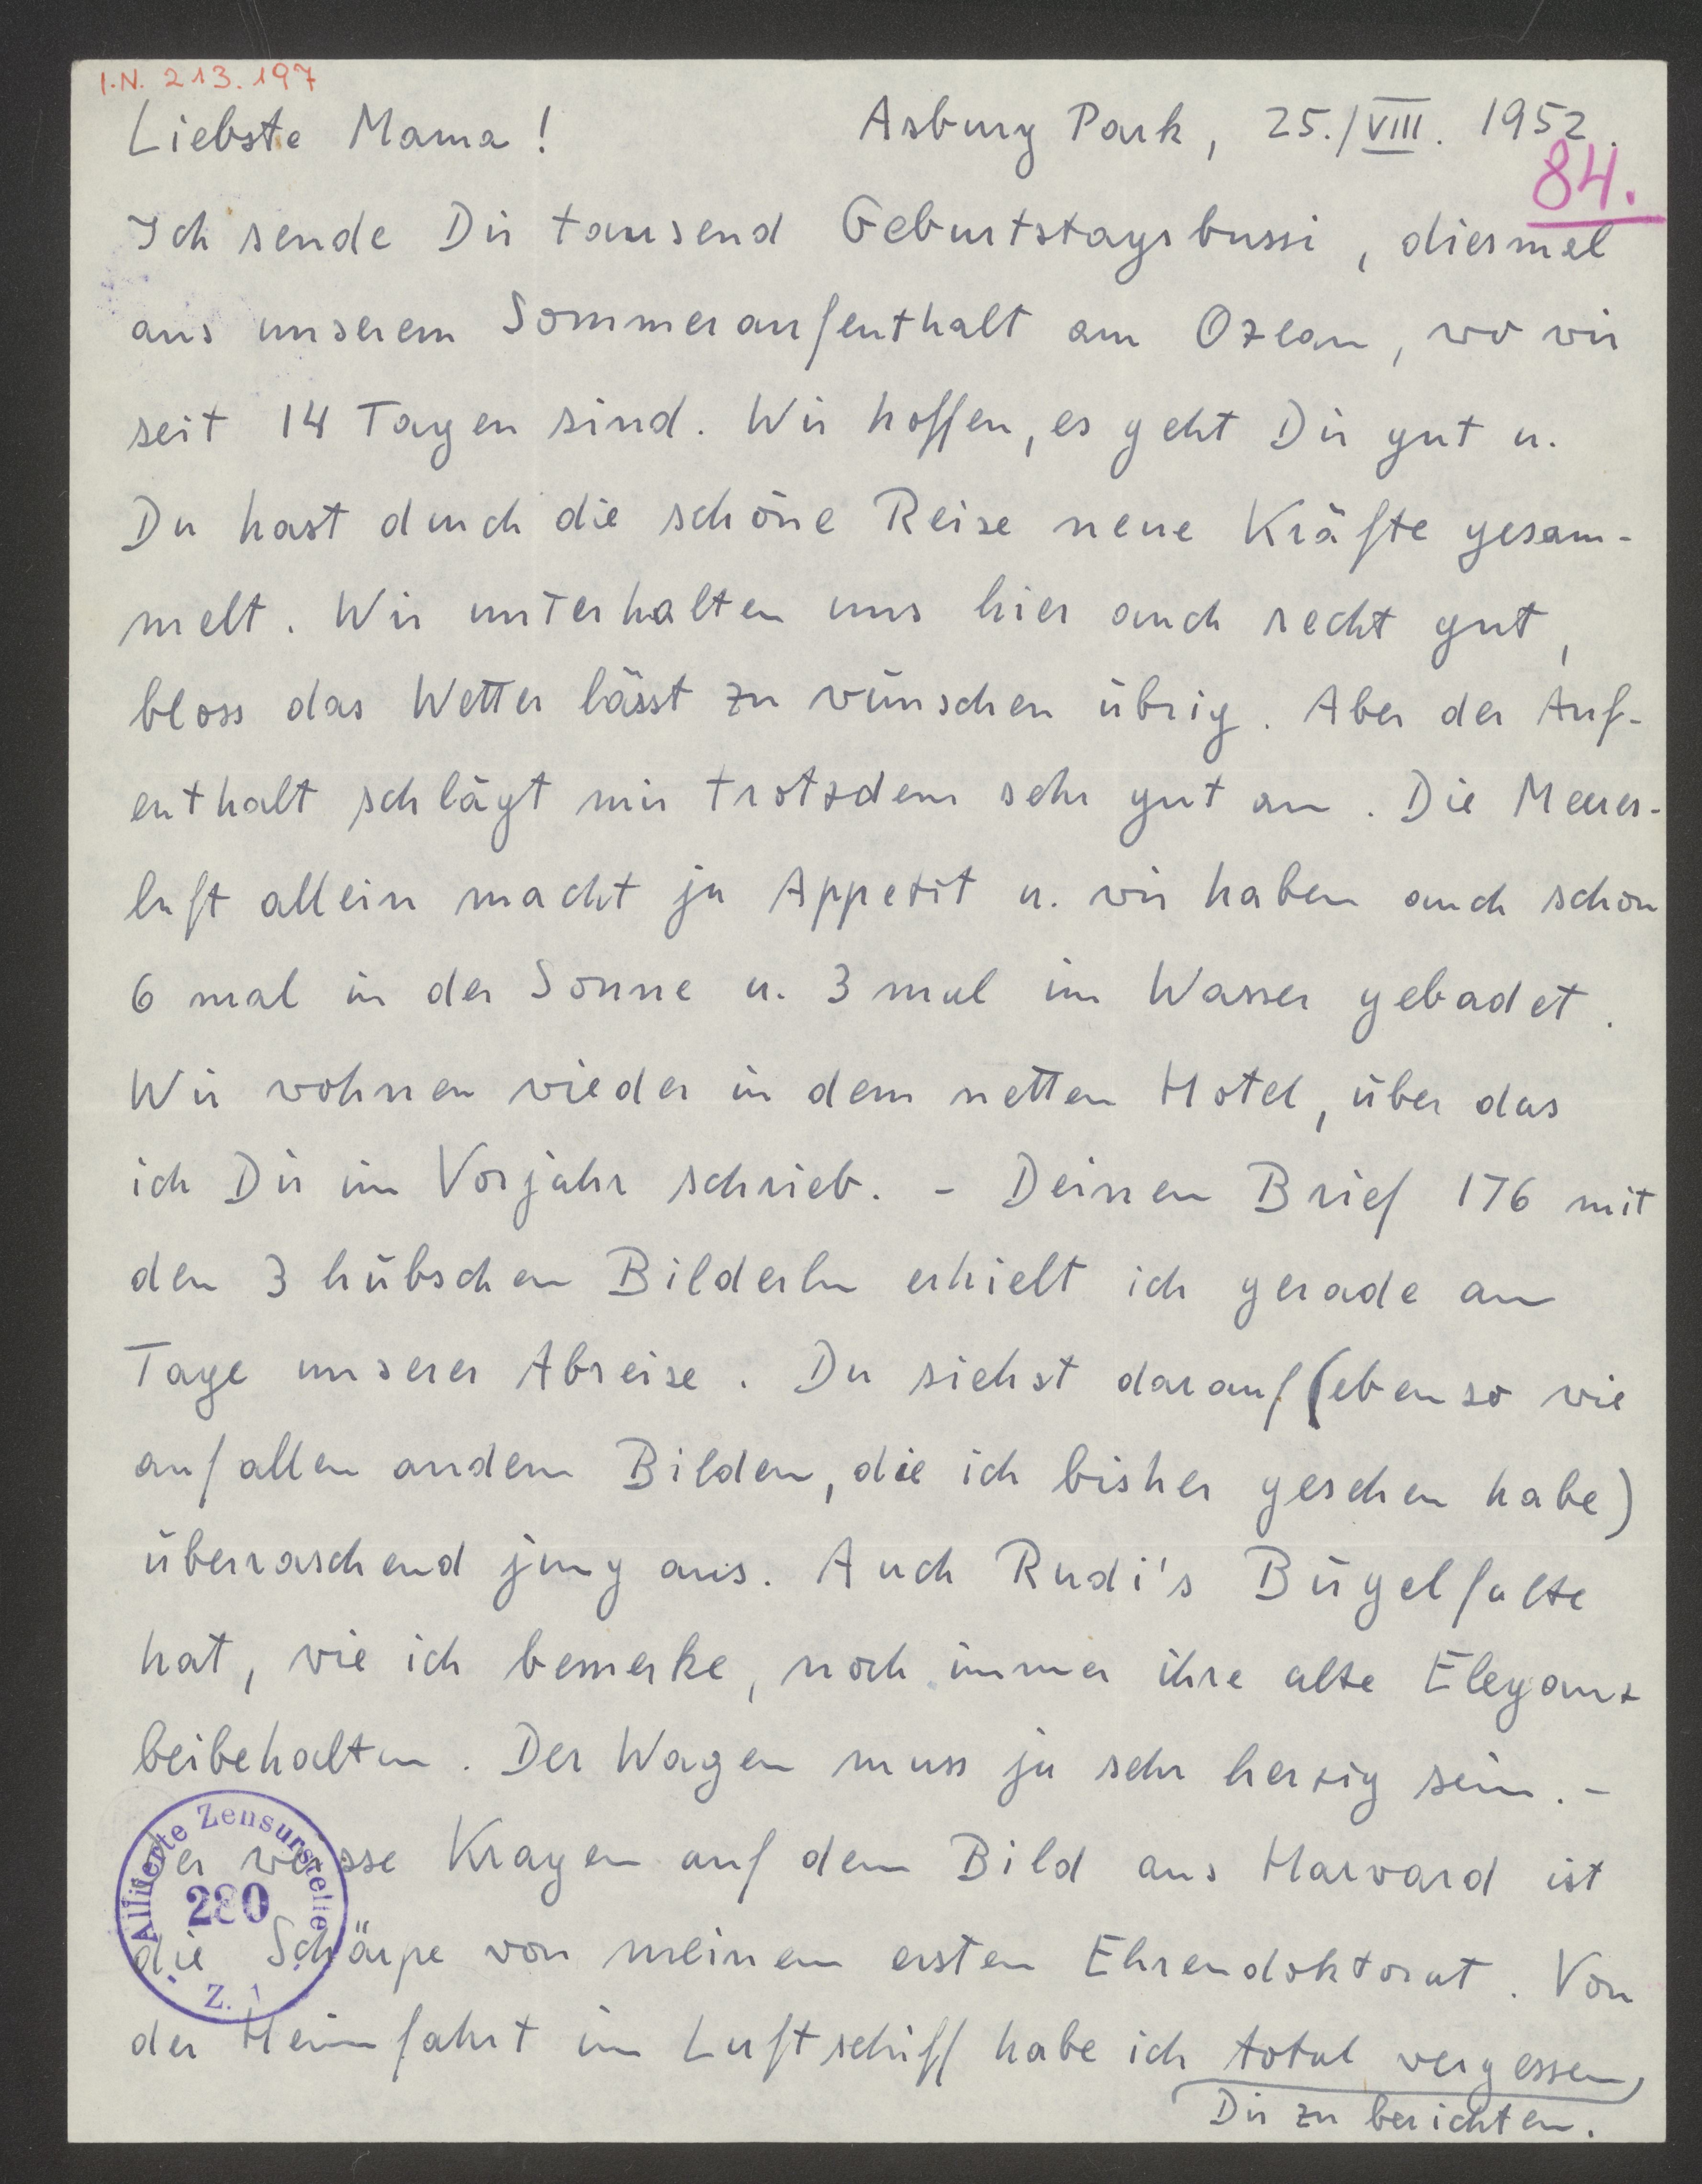 I.N. 213.197
Liebste Mama! Asbury Park, 25./VIII. 1952.
84.
Ich sende Dir tausend Geburtstagsbussi, diesmal
aus unserem Sommeraufenthalt am Ozean, wo wir
seit 14 Tagen sind. Wir hoffen, es geht Dir gut u.
Du hast durch die schöne Reise neue Kräfte gesam-
melt. Wir unterhalten uns hier auch recht gut,
bloss das Wetter lässt zu wünschen übrig. Aber der Auf-
enthalt schlägt mir trotzdem sehr gut an. Die Meeres-
luft allein macht ja Appetit u. wir haben auch schon
6 mal in der Sonne u. 3 mal im Wasser gebadet.
Wir wohnen wieder in dem netten Hotel, über das
ich Dir im Vorjahr schrieb. - Deinen Brief 176 mit
den 3 hübschen Bilderln erhielt ich gerade am
Tage unserer Abreise. Du siehst darauf (ebenso wie
auf allen andern Bildern, die ich bisher gesehen habe)
überraschend jung aus. Auch Rudi's Bügelfalte
hat, wie ich bemerke, noch immer ihre alte Eleganz
beibehalten. Der Wagen muss ja sehr herzig sein. -
Der weisse Kragen auf dem Bild aus Harvard ist
die Schärpe von meinem ersten Ehrendoktorat. Von
der Heimfahrt im Luftschiff habe ich total vergessen,
Dir zu berichten.
Alliierte Zensurstelle
280
Z. 1